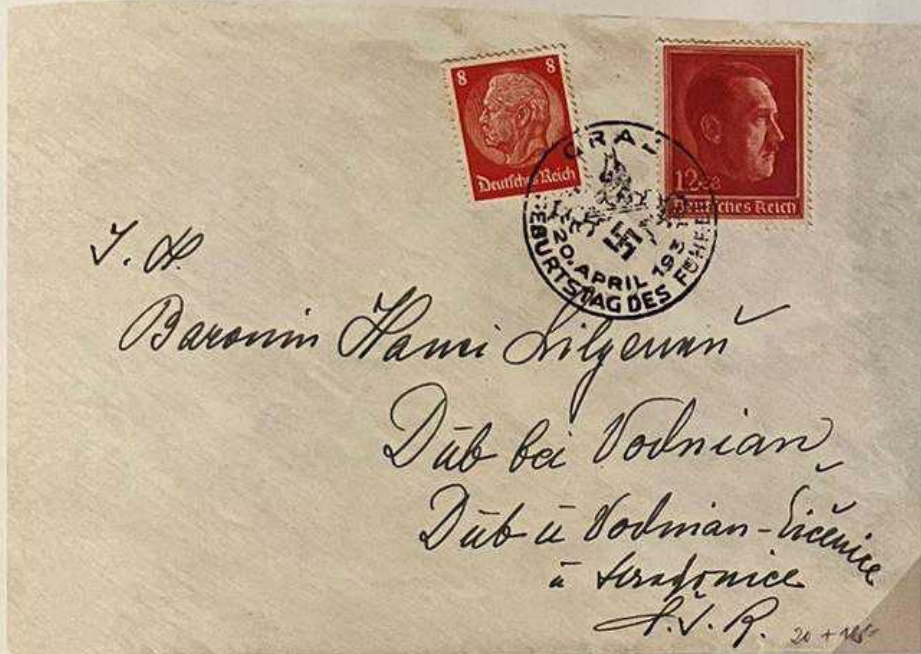 8 8
Deutsches Reich
12+38
Deutsches Reich
GRAZ
20. APRIL 193
GEBURTSTAG DES FÜHRERS
I. H.
Baronin Hanci
Dub bei Vodnian
Dub u Vodnian-Čičenice
u Strakonice
Č. S. R.
20 +